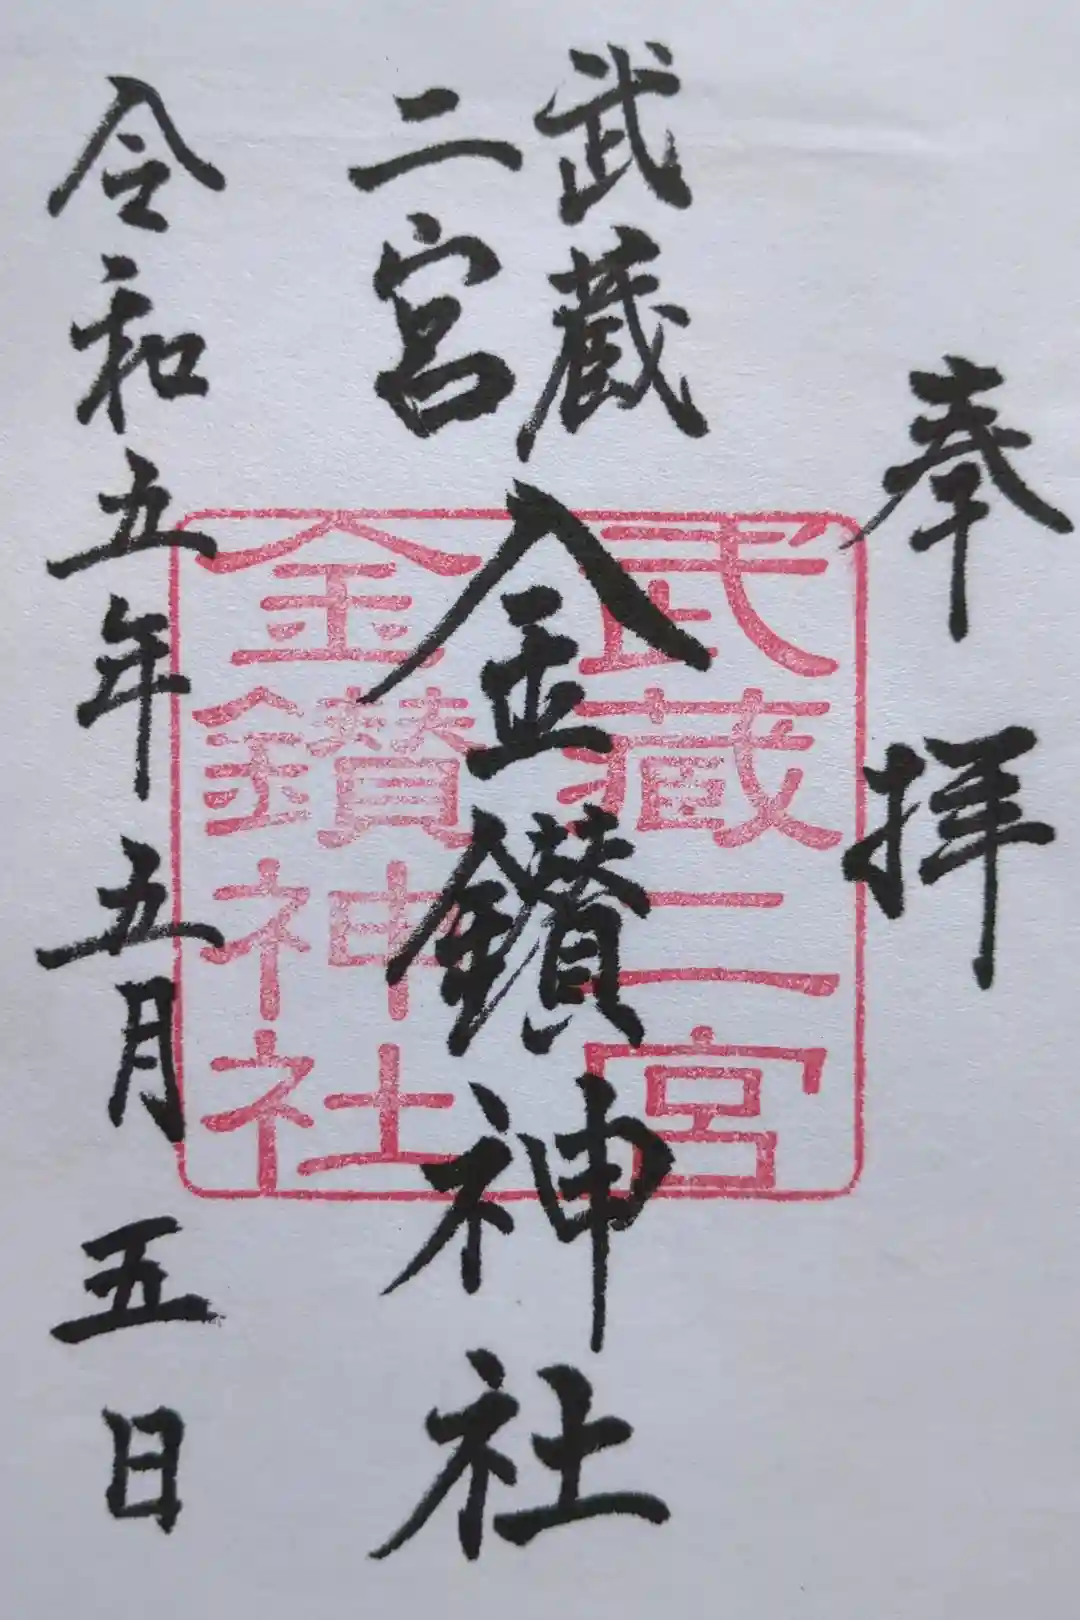 奉拝
武蔵
二宮
金鑚神社
令和五年五月五日
武蔵二宮
金鑚神社